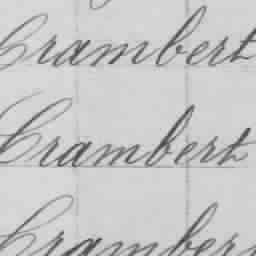 Crambert
Crambert
Cramber